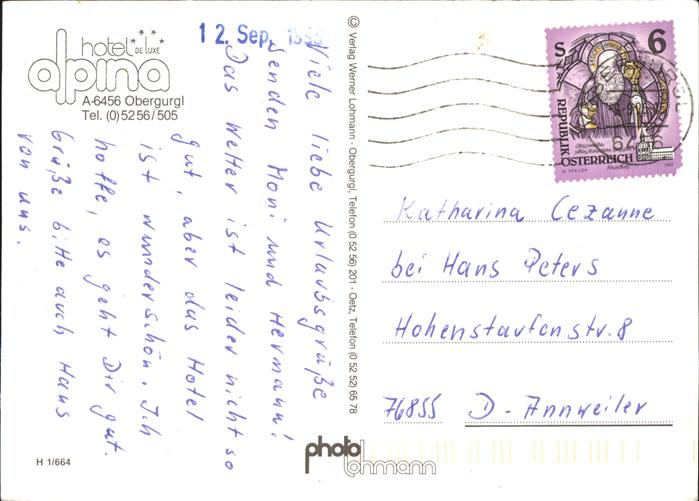 hotel
DE LUXE
alpina
A-6456 Obergurgl
Tel. (0) 52 56 / 505
12. Sep.
Viele liebe Urlaubsgrüße
senden Moni und Hermann!
Das Wetter ist leider nicht so
gut, aber das Hotel
ist wunderschön. Ich
hoffe, es geht Dir gut.
Grüße bitte auch Hans
von uns.
H 1/664
© Verlag Werner Lohmann · Obergurgl, Telefon (0 52 56) 201 · Oetz, Telefon (0 52 52) 65 78
photo
lohmann
S 6
REPUBLIK
ÖSTERREICH
Katharina Cezanne
bei Hans Peters
Hohenstaufenstr. 8
76855 D-Annweiler